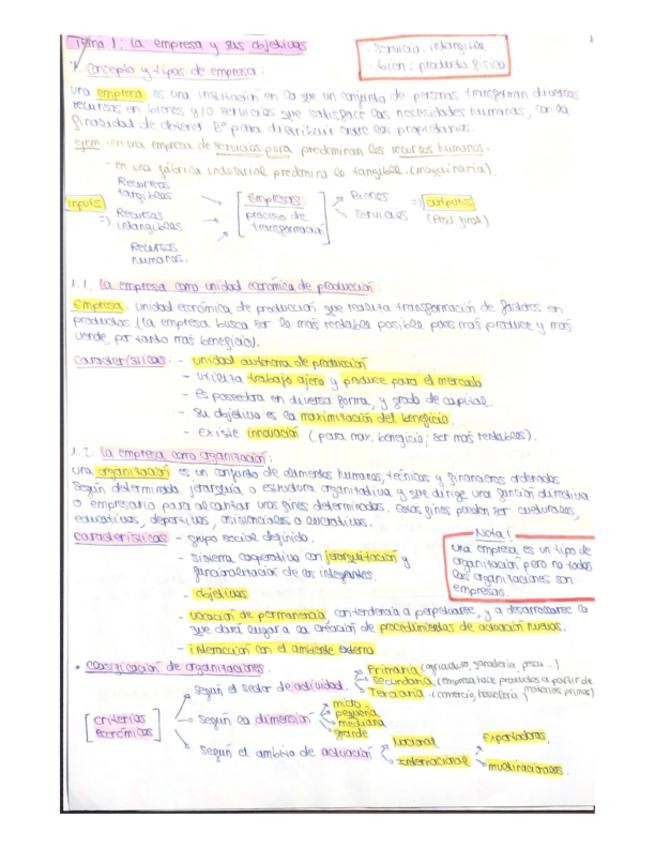 Tema 1: La empresa y sus objetivos
- Servicio: intangible
- bien: producto físico
1
1. Concepto y tipos de empresa:
una empresa es una institución en la que un conjunto de personas transforman diversos
recursos en bienes y/o servicios que satisface las necesidades humanas, con la
finalidad de obtener Bº para distribuir entre los propietarios.
ejem - en una empresa de servicios puro predominan los recursos humanos.
- en una fábrica industrial predomina lo tangible. (maquinaria).
Recursos
tangibles
inputs
=) Recursos
intangibles
Recursos
humanos.
Empresas
proceso de
transformación
Bienes
Servicios
=) outputs
(Prod. final)
1.1. La empresa como unidad económica de producción:
Empresa: unidad económica de producción que realiza transformación de factores en
productos (la empresa busca ser lo más rentable posible pues más produce y más
vende, por tanto más beneficio).
características: - unidad autónoma de producción
- utiliza trabajo ajeno y produce para el mercado
- Es poseedora en diversa forma, y grado de capital.
- Su objetivo es la maximización del beneficio.
- Existe innovación (para max. beneficio; ser más rentables).
1.2. La empresa como organización:
una organización es un conjunto de elementos humanos, técnicos y financieros ordenados
según determinada jerarquía o estructura organizativa y que dirige una función directiva
o empresario para alcanzar unos fines determinados. Estos fines pueden ser culturales,
educativos, deportivos, asistenciales o lucrativos.
características - grupo social definido.
- sistema cooperativo con jerarquización y
funcionalización de los integrantes.
- objetivos
Nota!
una empresa es un tipo de
organización pero no todas
las organizaciones son
empresas.
- vocación de permanencia con tendencia a perpetuarse, y a desarrollarse lo
que dará lugar a la creación de procedimientos de actuación nuevos.
- interacción con el ambiente externo
• Clasificación de organizaciones.
criterios
económicos
según el sector de actividad.
Primaria (agricultura, ganadería, pesca...)
Secundaria (empresa hace productos a partir de
materias primas)
Terciaria. (comercio, hostelería,
según la dimensión
micro
pequeña
mediana
grande
según el ámbito de actuación
Nacional
Internacional
Exportadoras,
multinacionales.